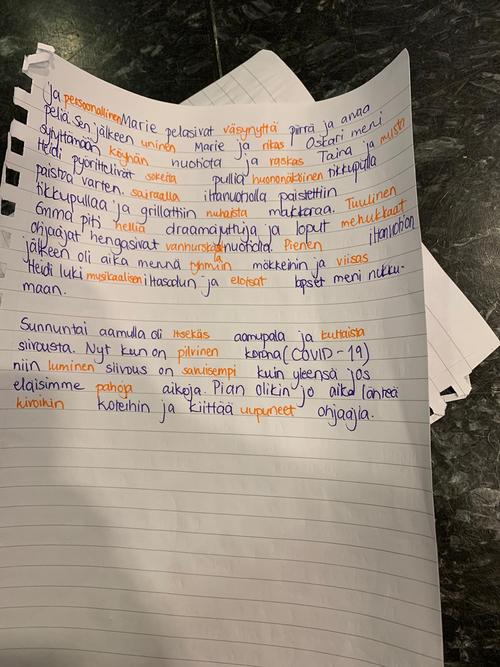 ja persoonallinen Marie pelasivat väsynyttä piirrä ja arvaa
peliä. Sen jälkeen uninen Marie ja rikas Oskari meni
sytyttämään köyhän nuotiota ja raskas Taina ja
Heidi pyörittelivät sokeita pullia huononäköinen tikkupulla
paistoa varten. sairaalla iltanuotiolla paistettiin
tikkupullaa ja grillattiin nuhaista makkaraa. Tuulinen
Emma piti helliä draamajuttuja ja loput mehukkaat
ohjaajat hengasivat vanhurskaalla nuotiolla. Pienen iltanuotion
jälkeen oli aika mennä tyhmiin mökkeihin ja viisas
Heidi luki musikaalisen iltasadun ja eloisat lapset meni nukku-
maan.
Sunnuntai aamulla oli itsekäs aamupala ja kultaista
siivousta. Nyt kun on pilvinen korona (COVID-19)
niin luminen siivous on saruisempi kuin yleensä jos
eläisimme pahoja aikoja. Pian olikin jo aika lähteä
kiroihin koteihin ja kiittää uupuneet ohjaajia.